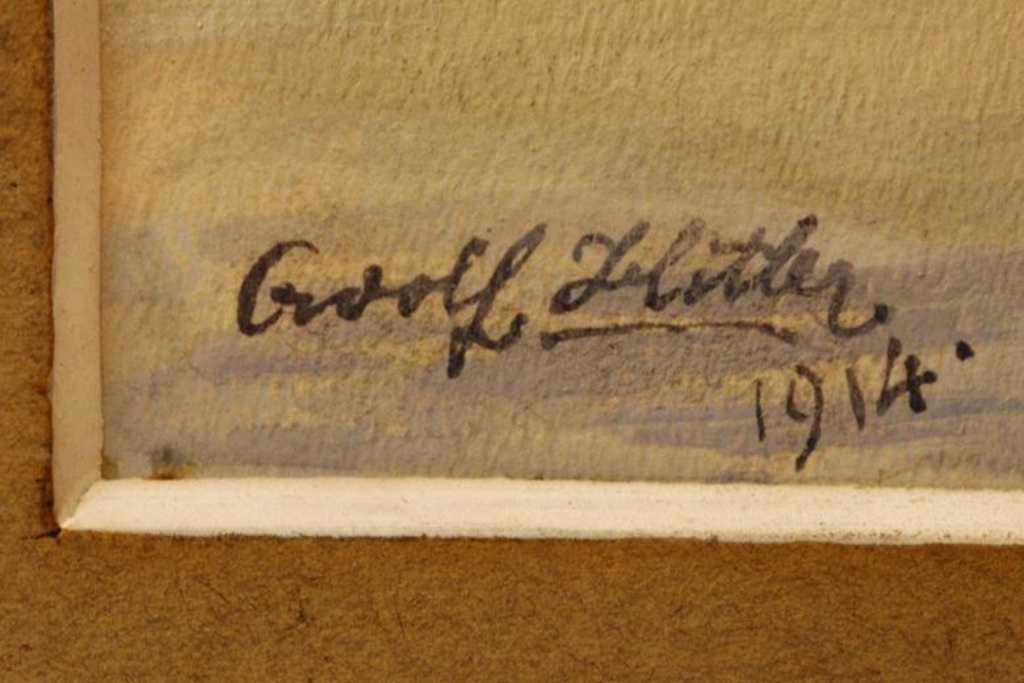 Adolf Hitler
1914.